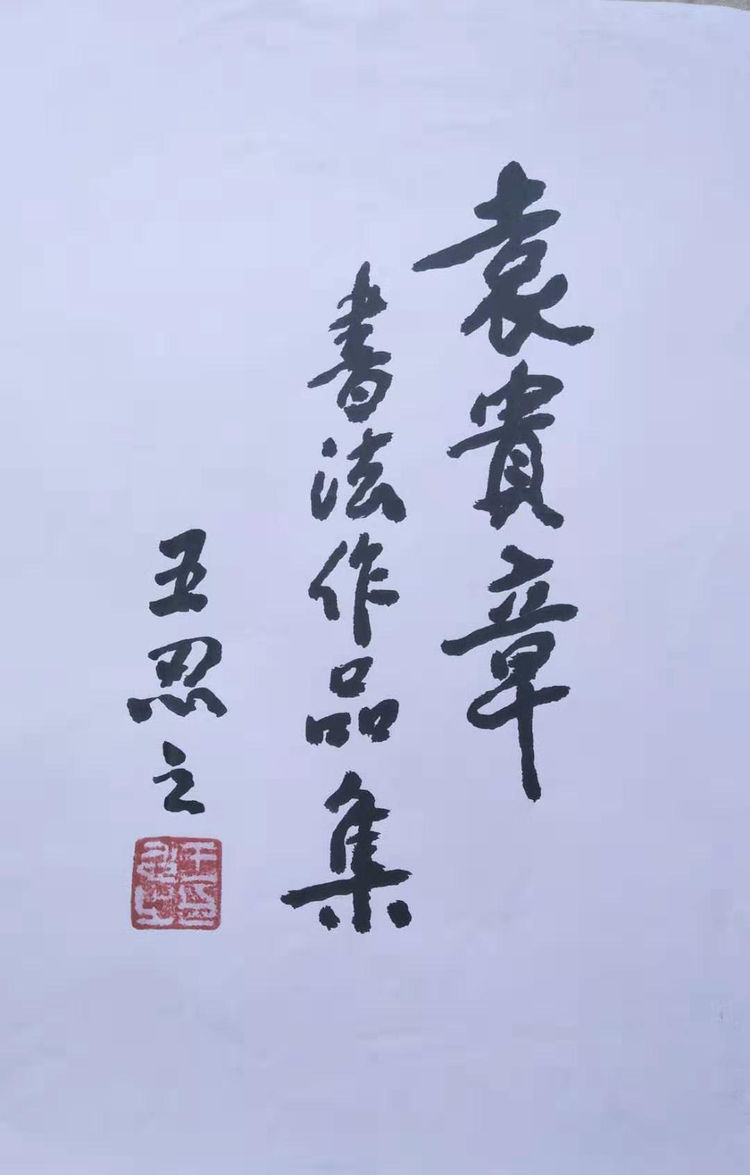 袁貴章
書法作品集
王忍之